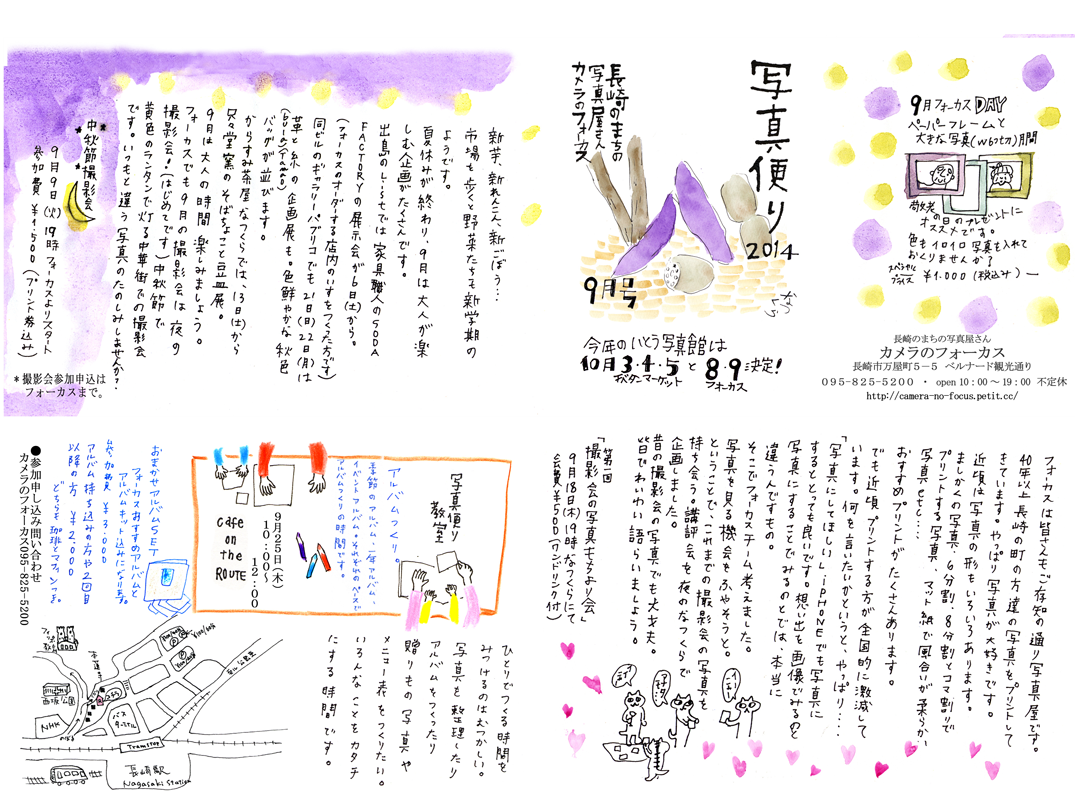 写真便り
2014
9月号
長崎のまちの
写真屋さん
カメラのフォーカス
なつ
今年のいとう写真館は
10月3・4・5と8・9決定!
デジタンマーケット
フォーカス
9月フォーカスDAY
ペーパーフレームと
大きな写真(W6切)月間
敬老
の日のプレゼントに
オススメです。
色もイロイロ写真を入れて
おくりませんか?
スペシャル
プライス
¥1,000(税込み)ー
長崎のまちの写真屋さん
カメラのフォーカス
長崎市万屋町5-5 ベルナード観光通り
095-825-5200 ・ open 10:00~19:00 不定休
http://camera-no-focus.petit.cc/
新芋、新れんこん、新ごぼう…
市場を歩くと野菜たちも新学期の
ようです。
夏休みが終わり、9月は大人が楽
しむ企画がたくさんです。
出島のLicでは家具職人のSODA
FACTORYの展示会が6日(土)から。
(フォーカスのオーダーする店内のいすをつくった方です)
同ビルのギャラリーパブリコでも21日(日)22日(月)は
革と糸の企画展も。色鮮やかな秋色
バッグが並びます。
からすみ茶屋なつくらでは、13日(土)から
只々堂窯のそばちょこと豆皿展。
9月は大人の時間 楽しみましょう。
フォーカスでも9月の撮影会は夜の
撮影会!(はじめてです)中秋節で
黄色のランタンで灯る中華街での撮影会
です。いつもと違う写真のたのしみしませんか?
*中秋節撮影会*
9月9日(火)19時フォーカスよりスタート
参加費¥1,500(プリント券込み)
*撮影会参加申込は
フォーカスまで。
フォーカスは皆さんもご存知の通り写真屋です。
40年以上長崎の町の方達の写真をプリントして
きています。やっぱり写真が大好きです。
近頃は写真の形もいろいろあります。
ましかくの写真、6分割、8分割とコマ割りで
プリントする写真、マット紙で風合いが柔らかい
写真 etc…
おすすめプリントがたくさんあります。
でも近頃プリントする方が全国的に激減して
います。何を言いたいかというと、やっぱり…
「写真にしてほしい」iPHONEでも写真に
するととっても良いです。想い出を画像でみるのと
写真にすることでみるのとでは、本当に
違うんですもの。
そこでフォーカスチーム考えました。
写真を見る機会をふやそうと。
ということで、これまでの撮影会の写真を
持ち合う。講評会を夜のなつくらで
企画しました。
昔の撮影会の写真でも大丈夫。
皆でわいわい語らいましょう。
「第一回
撮影会の写真もちより会」
9月18日(木)19時 なつくらにて
会費¥500(ワンドリンク付)
写真便り
教室
アルバムづくり。
季節のアルバム、一年アルバム、
イベントアルバム。それぞれのペースで
アルバムづくりの時間です。
9月25日(木)
10:00~12:00
cafe
on the
ROUTE
おまかせアルバムSET
フォーカスおすすめアルバムと
アルバムキット込みになります。
参加費 ¥3,000
アルバム持ち込みの方や2回目
以降の方 ¥2,000
どちらも珈琲とマフィンつき。
●参加申し込み問い合わせ
カメラのフォーカス095-825-5200
ひとりでつくる時間を
みつけるのはむつかしい。
写真を整理したり
アルバムをつくったり
贈りもの写真や
メニュー表をつくりたい。
いろんなことをカタチ
にする時間です。
西坂公園
NHK
バス
ターミナル
Tramstop
長崎駅
Nagasaki Station